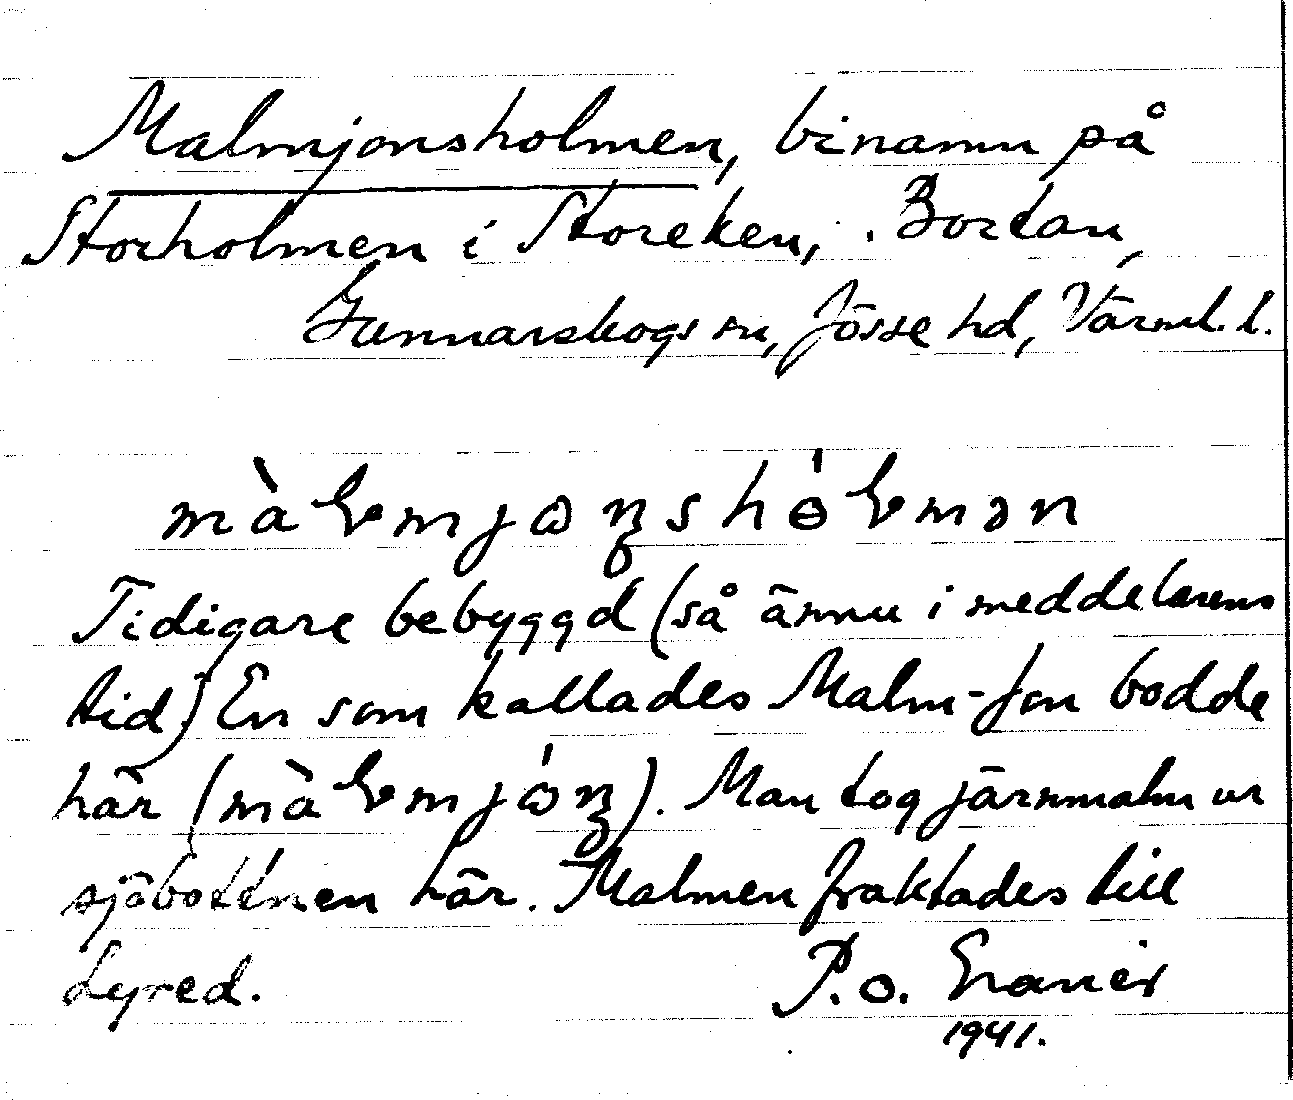 Malmjonsholmen, binamn på
Storholmen i Storeken, Bortan,
Gunnarskogs sn, Jösse hd, Värml. l.
Tidigare bebyggd (så ännu i meddelarens
tid) En som kallades Malm-Jon bodde
här (                ). Man tog järnmalm ur
sjöbottnen här. Malmen fraktades till
Lyred.
P.o.
1941.